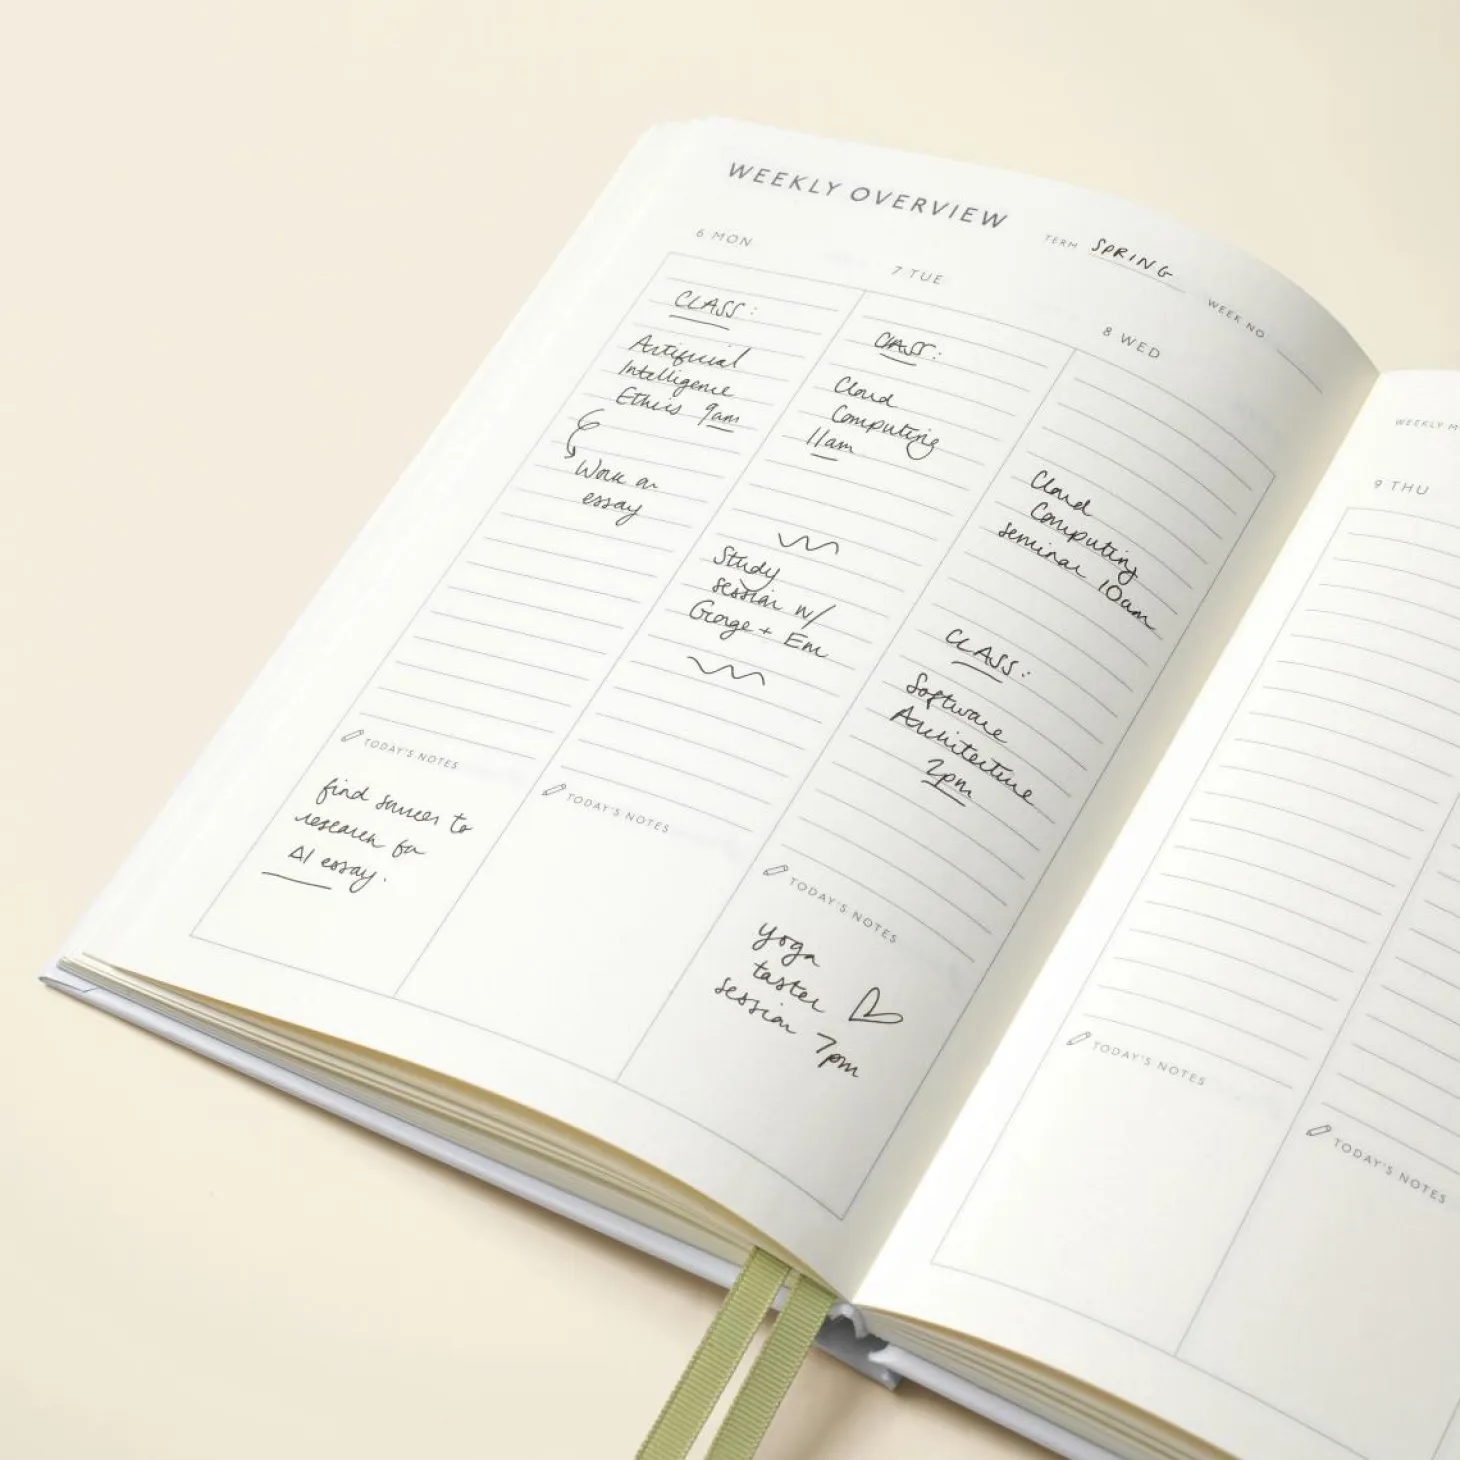 WEEKLY OVERVIEW
TERM SPRING
WEEK NO
6 MON
CLASS:
Artificial
Intelligence
Ethics 9am
Work on
essay
TODAY'S NOTES
find sources to
research for
AI essay.
7 TUE
CLASS:
Cloud
Computing
11am
Study
session w/
George + Em
TODAY'S NOTES
8 WED
Cloud
Computing
seminar 10am
CLASS:
Software
Architecture
2pm
TODAY'S NOTES
yoga
taster
session 7pm
WEEKLY
9 THU
TODAY'S NOTES
TODAY'S NOTES